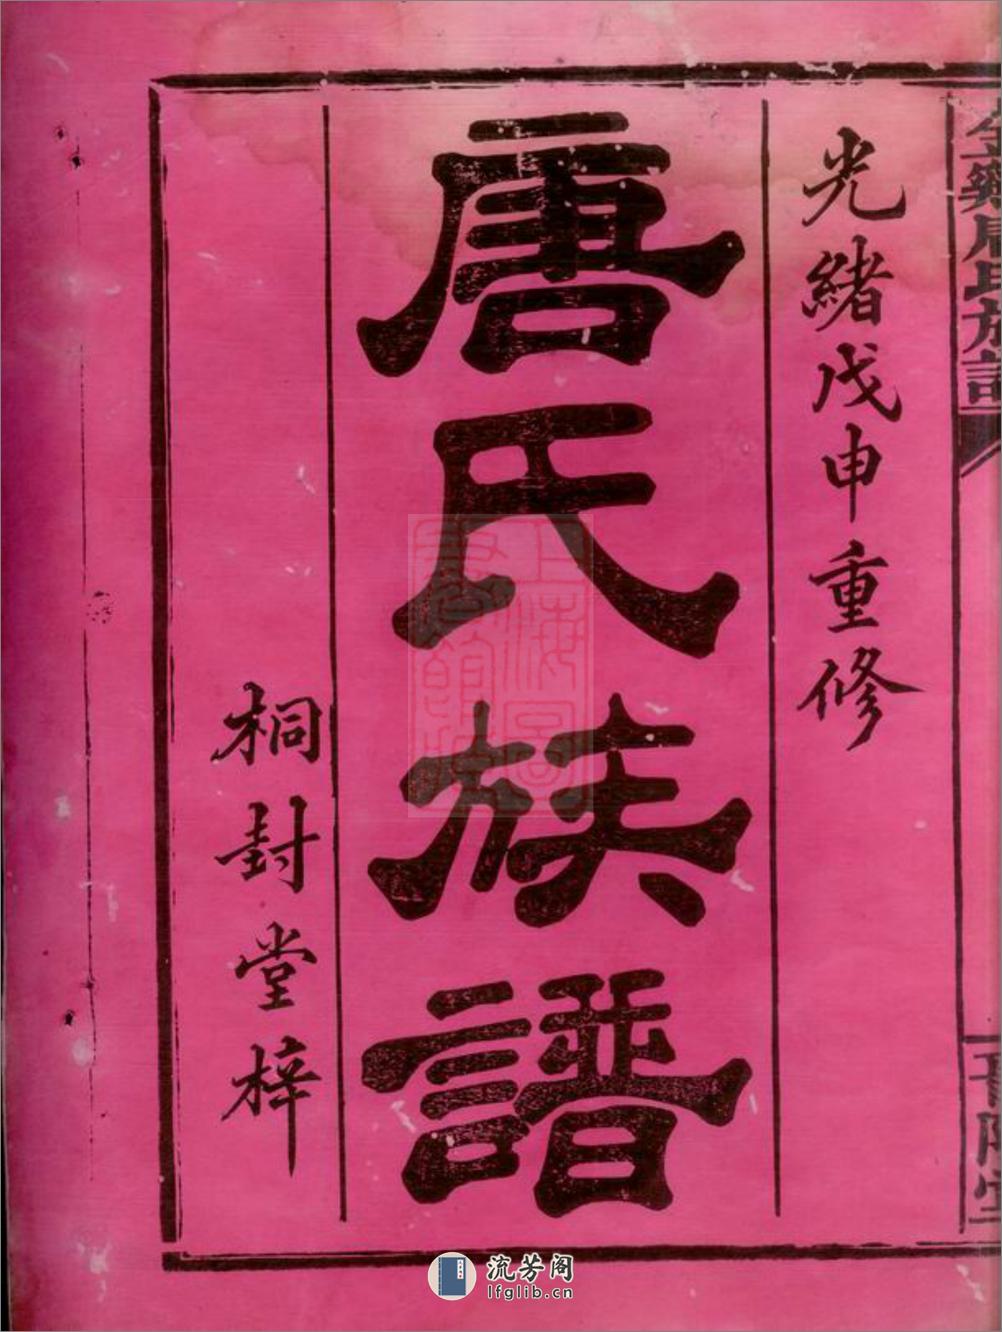 光緒戊申重修
唐氏族譜
桐封堂梓
流芳阁
lfglib.cn